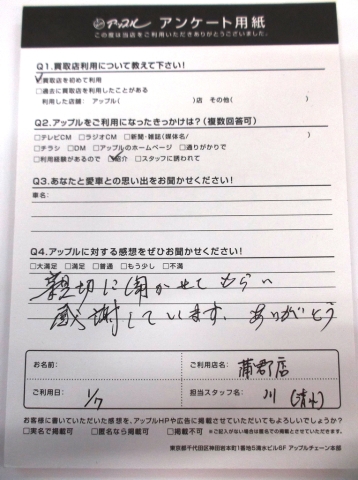 アップル アンケート用紙
この度は当店をご利用いただきありがとうございました。
Q1.買取店利用について教えて下さい!
☑買取店を初めて利用
□過去に買取店を利用したことがある
利用した店舗: アップル( )店 その他( )
Q2.アップルをご利用になったきっかけは?(複数回答可)
□テレビCM □ラジオCM □新聞・雑誌(媒体名/ )
□チラシ □DM □アップルのホームページ □通りがかりで
□利用経験があるので ☑紹介 □スタッフに誘われて
Q3.あなたと愛車との思い出をお聞かせください!
車名:
Q4.アップルに対する感想をぜひお聞かせください!
□大満足 □満足 □普通 □もう少し □不満
親切に聞かせてもらい
感謝しています。ありがとう
お名前:
ご利用店名: 蒲郡店
ご利用日: 1/7
担当スタッフ名: 川(清水)
お客様に書いていただいた感想を、アップルHPや広告に掲載させていただいてもよろしいでしょうか?
□実名で掲載可 □匿名なら掲載可 □掲載不可 ※ご記入がない場合は匿名での掲載とさせていただきます。
東京都千代田区神田岩本町1番地5清水ビル6F アップルチェーン本部